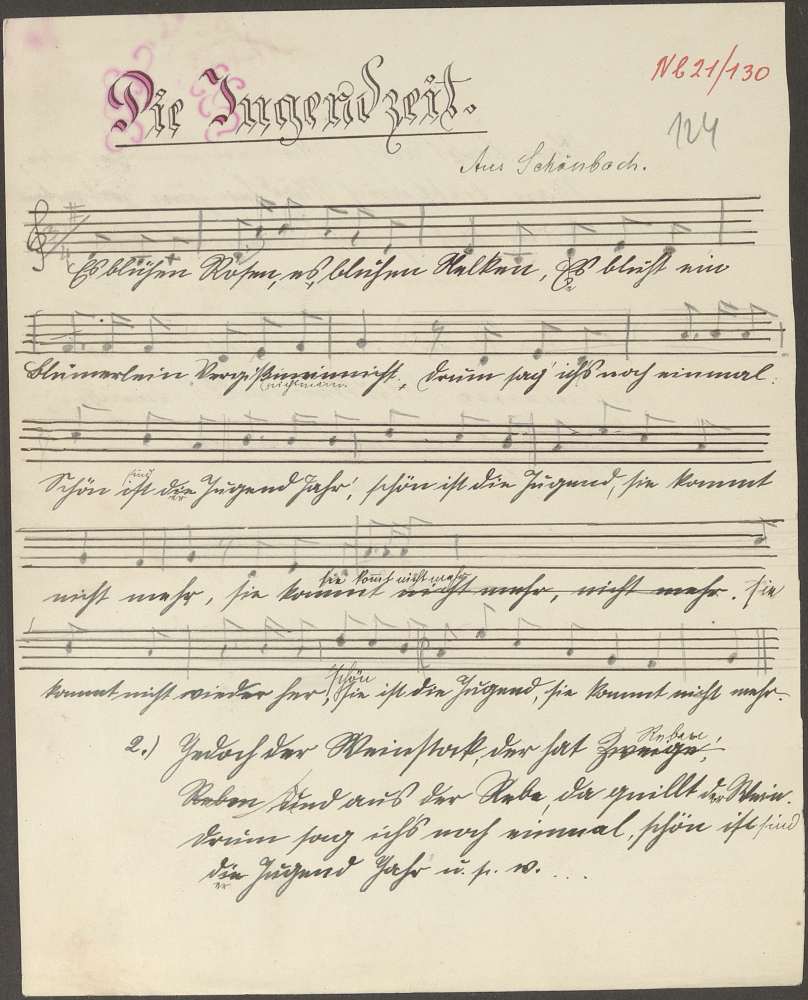 Die Jugendzeit.
Nb 21/130
124
Aus Schönbach.
3/4
Es blühen Rosen, es blühen Nelken, Es blüht ein
Blümerlein Vergißmeinnicht, drum sag' ich's noch einmal:
Schön ist die Jugend Jahr', schön ist die Jugend, sie kommt
sind
er
nicht mehr, sie kommt nicht mehr, nicht mehr. Sie
sie kommt nicht mehr
kommt nicht wieder her, sie ist die Jugend, sie kommt nicht mehr.
schön
2.) Jedoch der Weinstock, der hat Zweige,
Reben
Reben, Und aus der Rebe, da quillt der Wein.
drum sag ichs noch einmal, schön ist sind
die Jugend Jahr u. s. w. ...
er